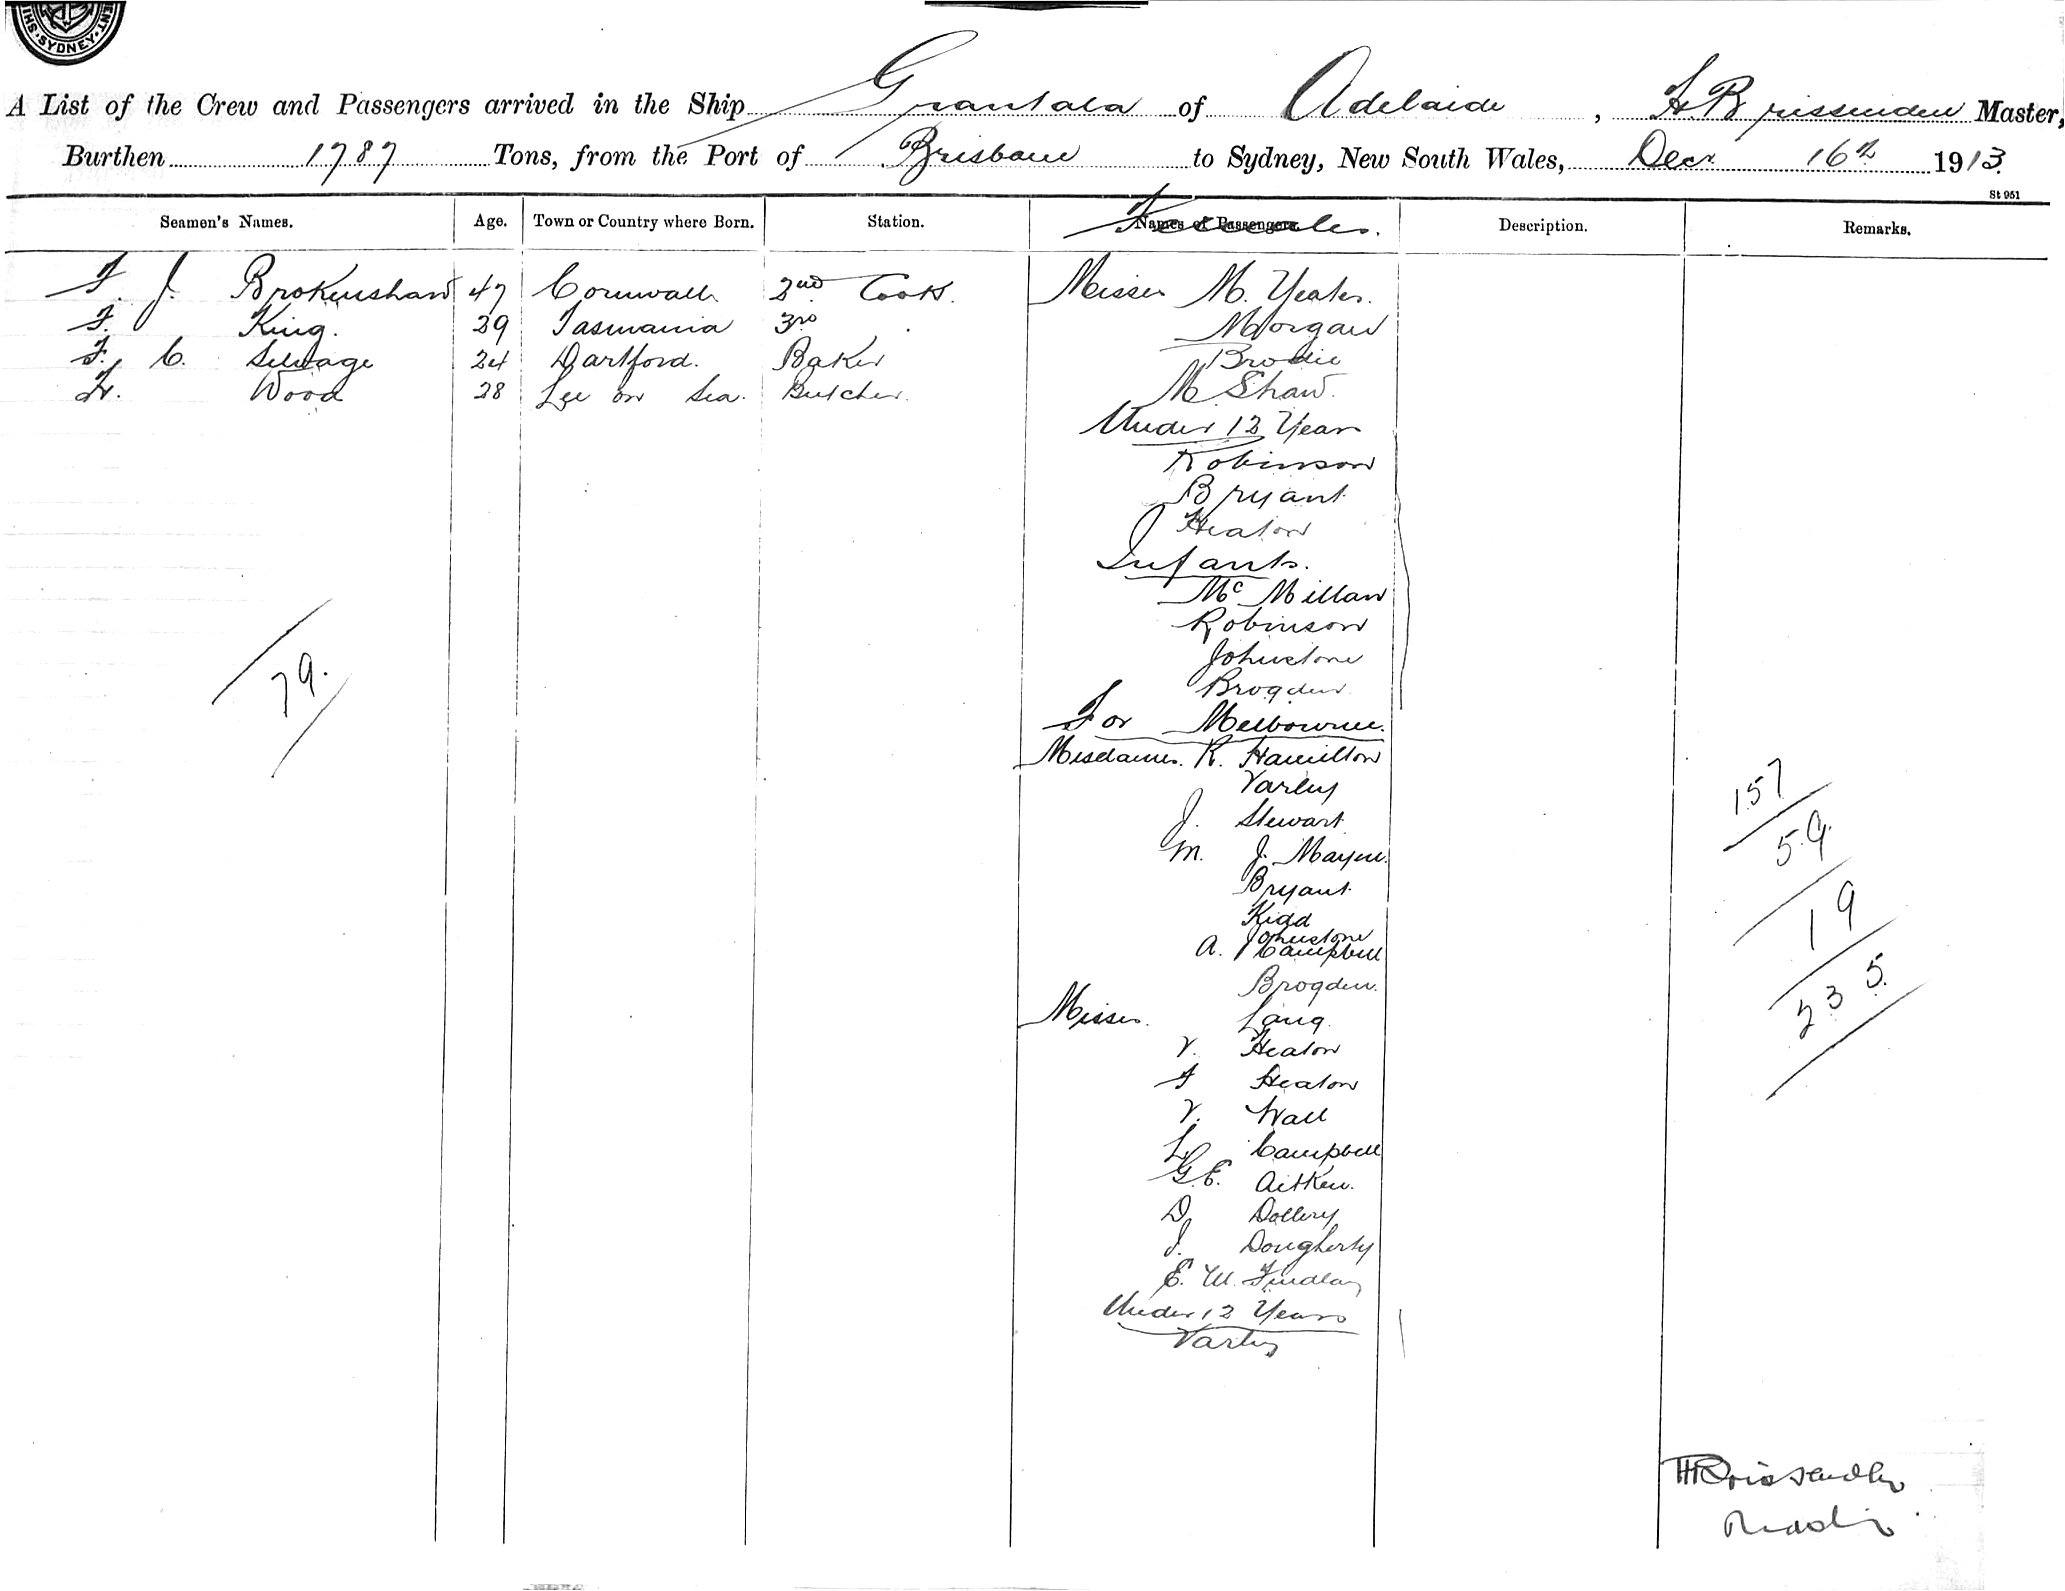 SYDNEY
A List of the Crew and Passengers arrived in the Ship Grantala of Adelaide, H. Brissenden Master,
Burthen 1787 Tons, from the Port of Brisbane to Sydney, New South Wales, Decr. 16th 1913
St 951
Seamen's Names. Age. Town or Country where Born. Station. Names of Passengers Females. Description. Remarks.
F. J. Brokenshaw 47 Cornwall 2nd Cook. Misses M. Yeates.
F. King. 29 Tasmania 3rd Morgan
F. C. Selvage 24 Dartford. Baker Brodie
Wood 28 Lee on Sea. Butcher. M Shaw.
Under 12 Years
Robinson
Bryant
Heaton
Infants.
Mc Millan
Robinson
Johnstone
Brogden
For Melbourne.
Mesdames. R. Hamilton
Varley
J. Stewart
M. J. Mayne.
Bryant
Kidd
Johnstone
A. Campbell
Brogden.
Misses. Lang.
V. Heaton
F Heaton
V. Wall
L Campbell
G.E. Aitken.
D Dollery
J. Dougherty
E. M. Findlay
Under 12 Years
Varley
79.
157
59.
19
235.
HBrissenden
Master